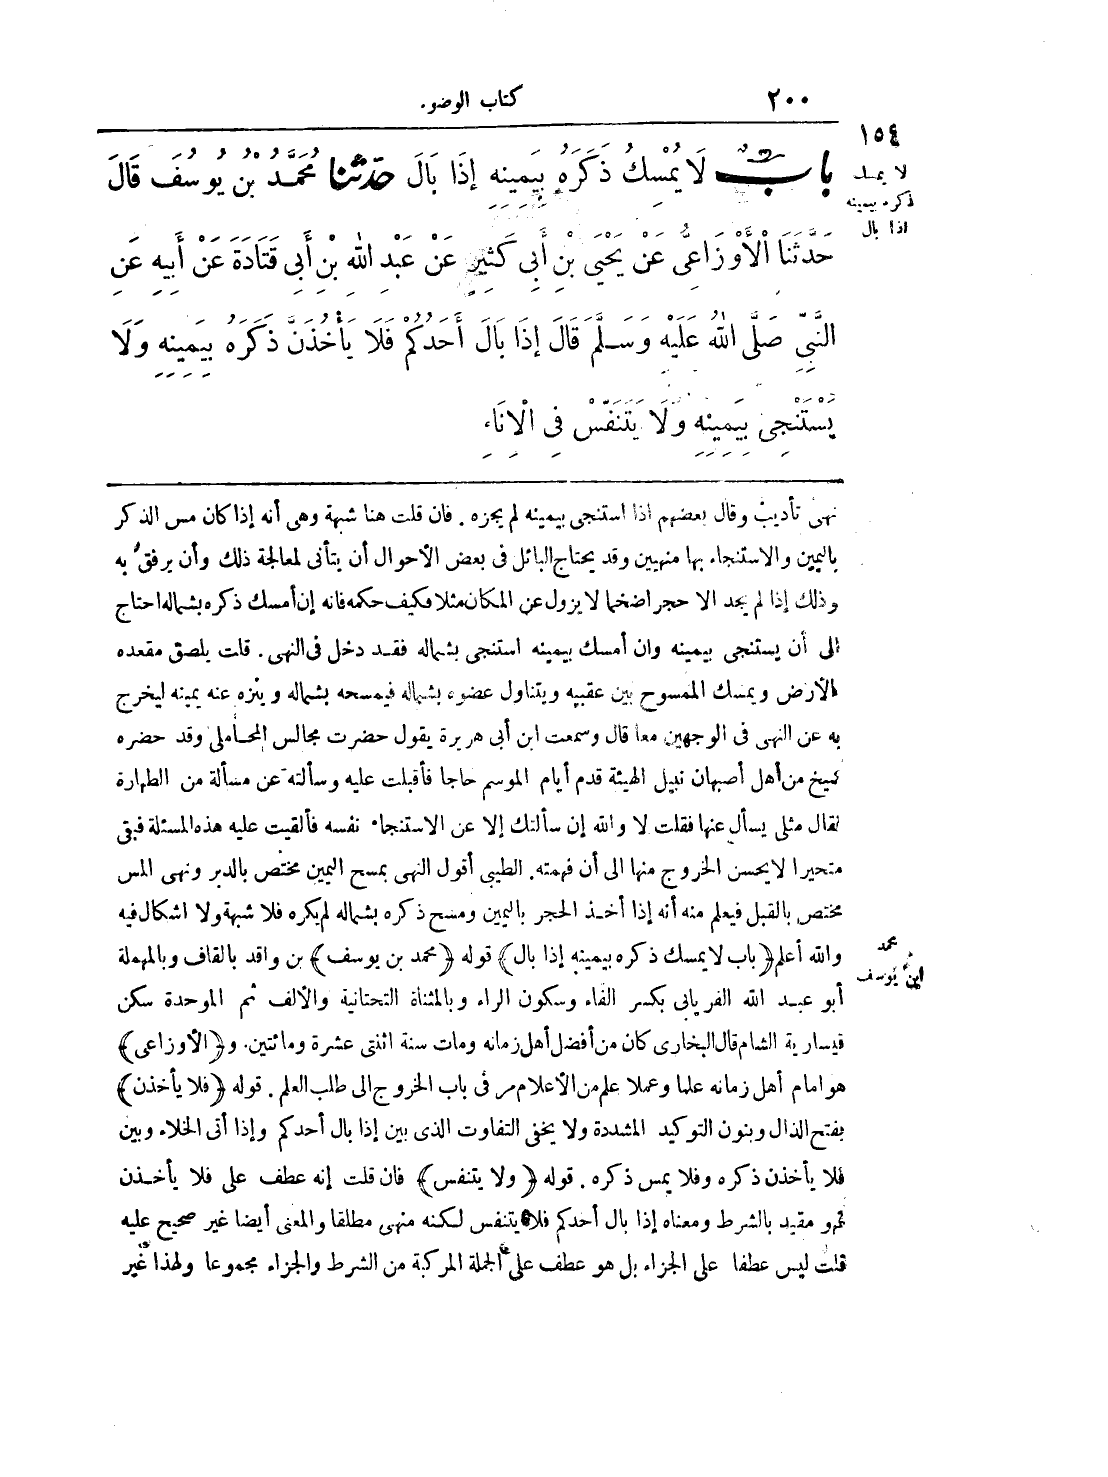 ٢٠٠ كتاب الوضوء
١٥٤
لا يمسك
ذكره بيمينه
اذا بال
بابٌ لَا يُمْسِكُ ذَكَرَهُ بِيَمِينِهِ إِذَا بَالَ حدّثنا مُحَمَّدُ بْنُ يُوسُفَ قَالَ
حَدَّثَنَا الْأَوْزَاعِىُّ عَنْ يَحْيَى بْنِ أَبِى كَثِيرٍ عَنْ عَبْدِ اللهِ بْنِ أَبِى قَتَادَةَ عَنْ أَبِيهِ عَنِ
النَّبِىِّ صَلَّى اللهُ عَلَيْهِ وَسَلَّمَ قَالَ إِذَا بَالَ أَحَدُكُمْ فَلَا يَأْخُذَنَّ ذَكَرَهُ بِيَمِينِهِ وَلَا
يَسْتَنْجِى بِيَمِينِهِ وَلَا يَتَنَفَّسْ فِى الْإِنَاءِ
نهى تأديب وقال بعضهم اذا استنجى بيمينه لم يجزه . فان قلت هنا شبهة وهى أنه إذا كان مس الذكر
باليمين والاستنجاء بها منهيين وقد يحتاج البائل فى بعض الأحوال أن يتأنى لمعالجة ذلك وأن يرفق به
وذلك إذا لم يجد الا حجرا ضخما لا يزول عن المكان مثلا فكيف حكمه فانه إن أمسك ذكره بشماله احتاج
الى أن يستنجى بيمينه وان أمسك بيمينه استنجى بشماله فقد دخل فى النهى . قلت يلصق مقعده
الأرض ويمسك الممسوح بين عقبيه ويتناول عضوه بشماله فيمسحه بشماله وينزه عنه يمينه ليخرج
به عن النهى فى الوجهين معا قال وسمعت ابن أبى هريرة يقول حضرت مجالس المحاملى وقد حضره
شيخ من أهل أصبهان نبيل الهيئة قدم أيام الموسم حاجا فأقبلت عليه وسألته عن مسألة من الطهارة
فقال مثلى يسأل عنها فقلت لا والله إن سألتك إلا عن الاستنجاء نفسه فألقيت عليه هذه المسئلة فبقى
متحيرا لا يحسن الخروج منها الى أن فهمته . الطيبى أقول النهى بمسح اليمين مختص بالدبر ونهى المس
مختص بالقبل فيعلم منه أنه إذا أخذ الحجر باليمين ومسح ذكره بشماله لم يكره فلا شبهة ولا اشكال فيه
والله أعلم (باب لا يمسك ذكره بيمينه إذا بال) قوله (محمد بن يوسف) بن واقد بالقاف وبالمهملة
محمد
ابن يوسف
أبو عبد الله الفريابى بكسر الفاء وسكون الراء وبالمثناة التحتانية والألف ثم الموحدة سكن
قيسارية الشام قال البخارى كان من أفضل أهل زمانه ومات سنة اثنتى عشرة ومائتين. و(الأوزاعى)
هو امام أهل زمانه علما وعملا علم من الأعلام مر فى باب الخروج الى طلب العلم . قوله (فلا يأخذن)
بفتح الذال وبنون التوكيد المشددة ولا يخفى التفاوت الذى بين إذا بال أحدكم وإذا أتى الخلاء وبين
فلا يأخذن ذكره وفلا يمس ذكره . قوله (ولا يتنفس) فان قلت إنه عطف على فلا يأخذن
فهو مقيد بالشرط ومعناه إذا بال أحدكم فلا يتنفس لكنه منهى مطلقا والمعنى أيضا غير صحيح عليه
قلت ليس عطفا على الجزاء بل هو عطف على الجملة المركبة من الشرط والجزاء مجموعا ولهذا غير